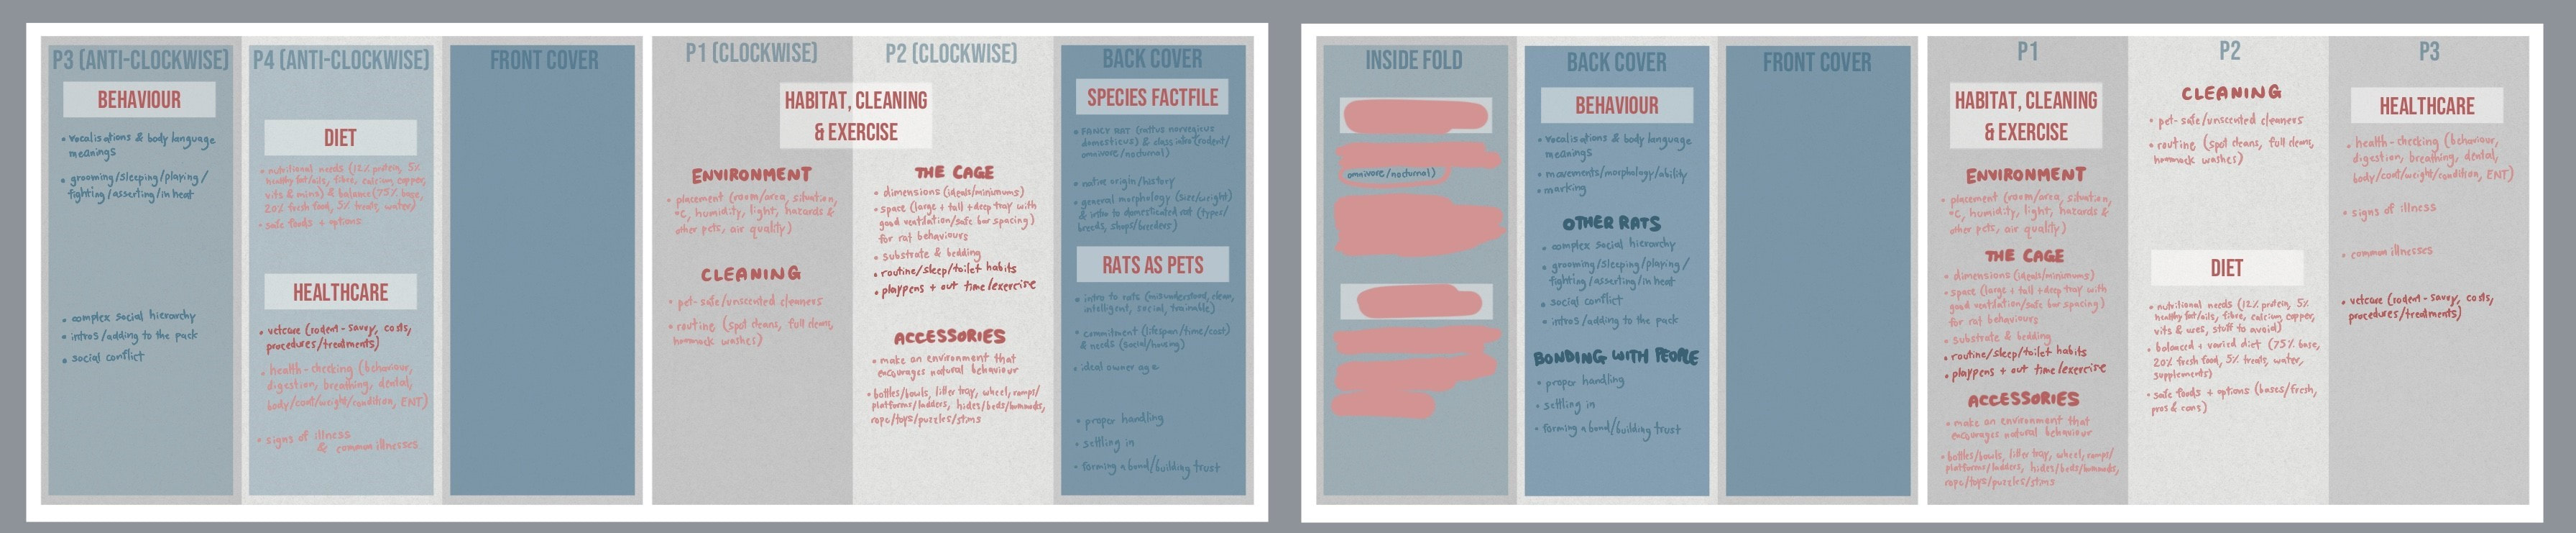 P3 (ANTI-CLOCKWISE)
BEHAVIOUR
• vocalisations & body language
meanings
• grooming/sleeping/playing/
fighting/asserting/in heat
• complex social hierarchy
• intros/adding to the pack
• social conflict
P4 (ANTI-CLOCKWISE)
DIET
• nutritional needs (12% protein, 5%
healthy fat/oils, fibre, calcium, copper,
vits & mins) & balance (75% base,
20% fresh food, 5% treats, water)
• safe foods + options
HEALTHCARE
• vetcare (rodent-savvy, costs,
procedures/treatments)
• health-checking (behaviour,
digestion, breathing, dental,
body/coat/weight/condition, ENT)
• signs of illness
& common illnesses
FRONT COVER
P1 (CLOCKWISE)
P2 (CLOCKWISE)
HABITAT, CLEANING
& EXERCISE
ENVIRONMENT
• placement (room/area, situation,
°C, humidity, light, hazards &
other pets, air quality)
CLEANING
• pet-safe/unscented cleaners
• routine (spot cleans, full cleans,
hammock washes)
THE CAGE
• dimensions (ideals/minimums)
• space (large + tall + deep tray with
good ventilation/safe bar spacing)
for rat behaviours
• substrate & bedding
• routine/sleep/toilet habits
• playpens + out time/exercise
ACCESSORIES
• make an environment that
encourages natural behaviour
• bottles/bowls, litter tray, wheel, ramps/
platforms/ladders, hides/beds/hammocks,
rope/toys/puzzles/stims
BACK COVER
SPECIES FACTFILE
• FANCY RAT (rattus norvegicus
domesticus) & class intro (rodent/
omnivore/nocturnal)
• native origin/history
• general morphology (size/weight)
& intro to domesticated rat (types/
breeds, shops/breeders)
RATS AS PETS
• intro to rats (misunderstood, clean,
intelligent, social, trainable)
• commitment (lifespan/time/cost)
& needs (social/housing)
• ideal owner age
• proper handling
• settling in
• forming a bond/building trust
INSIDE FOLD
omnivore/nocturnal)
BACK COVER
BEHAVIOUR
• vocalisations & body language
meanings
• movements/morphology/ability
• marking
OTHER RATS
• complex social hierarchy
• grooming/sleeping/playing/
fighting/asserting/in heat
• social conflict
• intros/adding to the pack
BONDING WITH PEOPLE
• proper handling
• settling in
• forming a bond/building trust
FRONT COVER
P1
HABITAT, CLEANING
& EXERCISE
ENVIRONMENT
• placement (room/area, situation,
°C, humidity, light, hazards &
other pets, air quality)
THE CAGE
• dimensions (ideals/minimums)
• space (large + tall + deep tray with
good ventilation/safe bar spacing)
for rat behaviours
• substrate & bedding
• routine/sleep/toilet habits
• playpens + out time/exercise
ACCESSORIES
• make an environment that
encourages natural behaviour
• bottles/bowls, litter tray, wheel, ramps/
platforms/ladders, hides/beds/hammocks,
rope/toys/puzzles/stims
P2
CLEANING
• pet-safe/unscented cleaners
• routine (spot cleans, full cleans,
hammock washes)
DIET
• nutritional needs (12% protein, 5%
healthy fat/oils, fibre, calcium, copper,
vits & stuff to avoid)
• balanced + varied diet (75% base,
20% fresh food, 5% treats, water,
supplements)
• safe foods + options (bases/fresh,
pros & cons)
P3
HEALTHCARE
• health-checking (behaviour,
digestion, breathing, dental,
body/coat/weight/condition, ENT)
• signs of illness
• common illnesses
• vetcare (rodent-savvy, costs,
procedures/treatments)